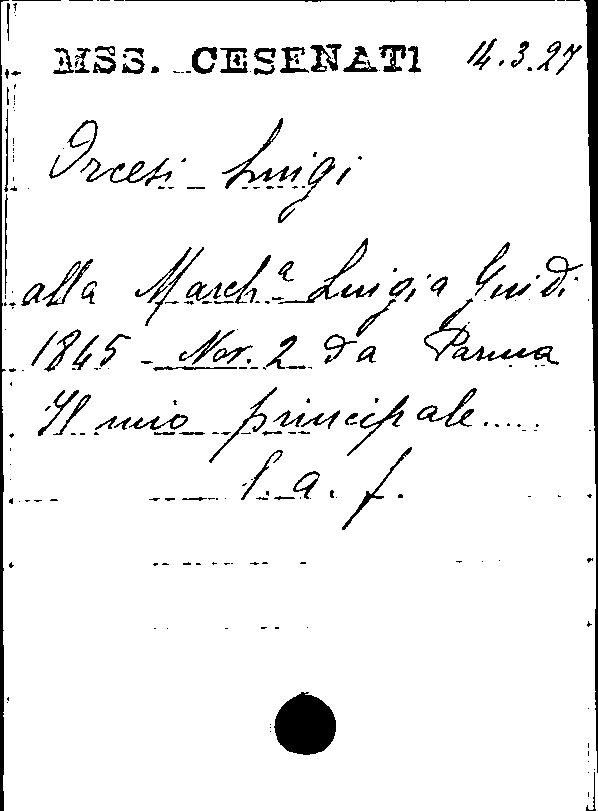 MSS. CESENATI 14.3.27
Orcesi Luigi
alla Marchª Luigia Guidi
1845 - Nov. 2 da Parma
Il mio principale.....
l. a. f.